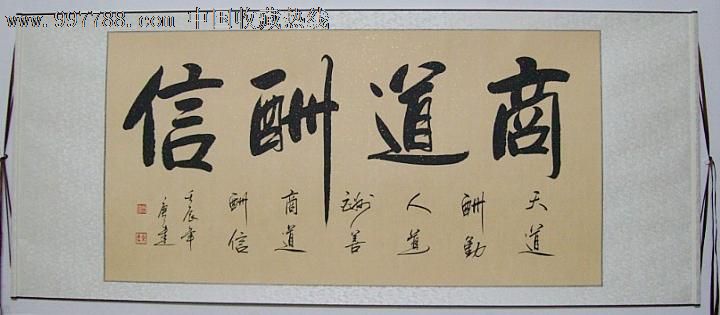 www.997788.com 中国收藏热线
商道酬信
天道
酬勤
人道
酬善
商道
酬信
壬辰年